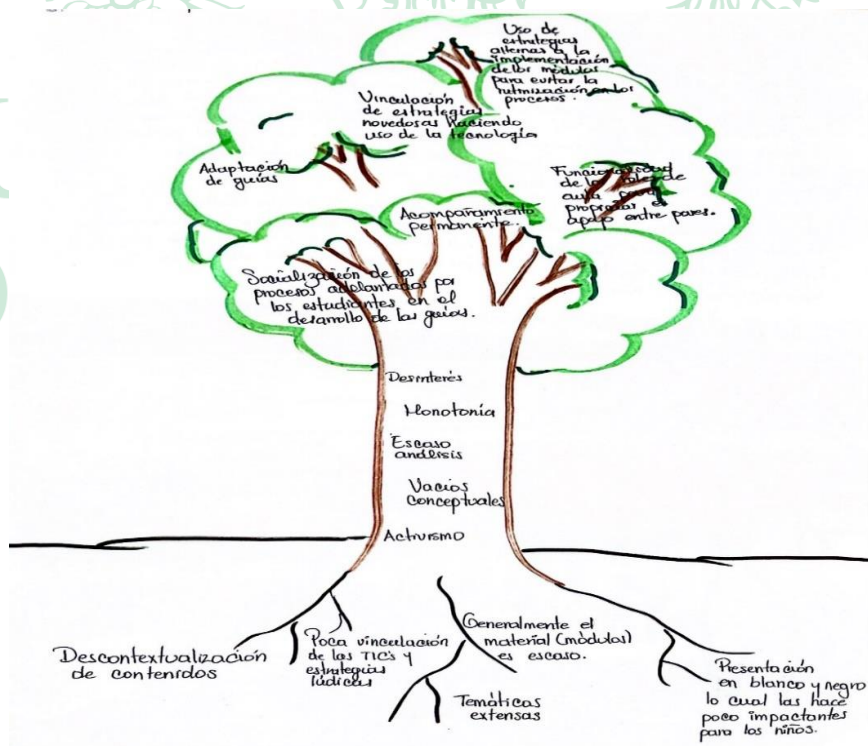 Uso de
estrategias
alternas a la
implementación
de los módulos
para evitar la
rutinización en los
procesos.
Vinculación
de estrategias
novedosas Haciendo
uso de la tecnología
Adaptación
de guías
Funcionalidad
de los roles de
aula para
propiciar el
apoyo entre pares.
Acompañamiento
permanente.
Socialización de los
procesos adelantados por
los estudiantes en el
desarrollo de las guías.
Desinterés
Monotonía
Escaso
análisis
Vacios
conceptuales
Activismo
Descontextualización
de contenidos
Poca vinculación
de las TICs y
estrategias
lúdicas
Generalmente el
material (módulos)
es escaso.
Temáticas
extensas
Presentación
en blanco y negro
lo cual las hace
poco impactantes
para los niños.